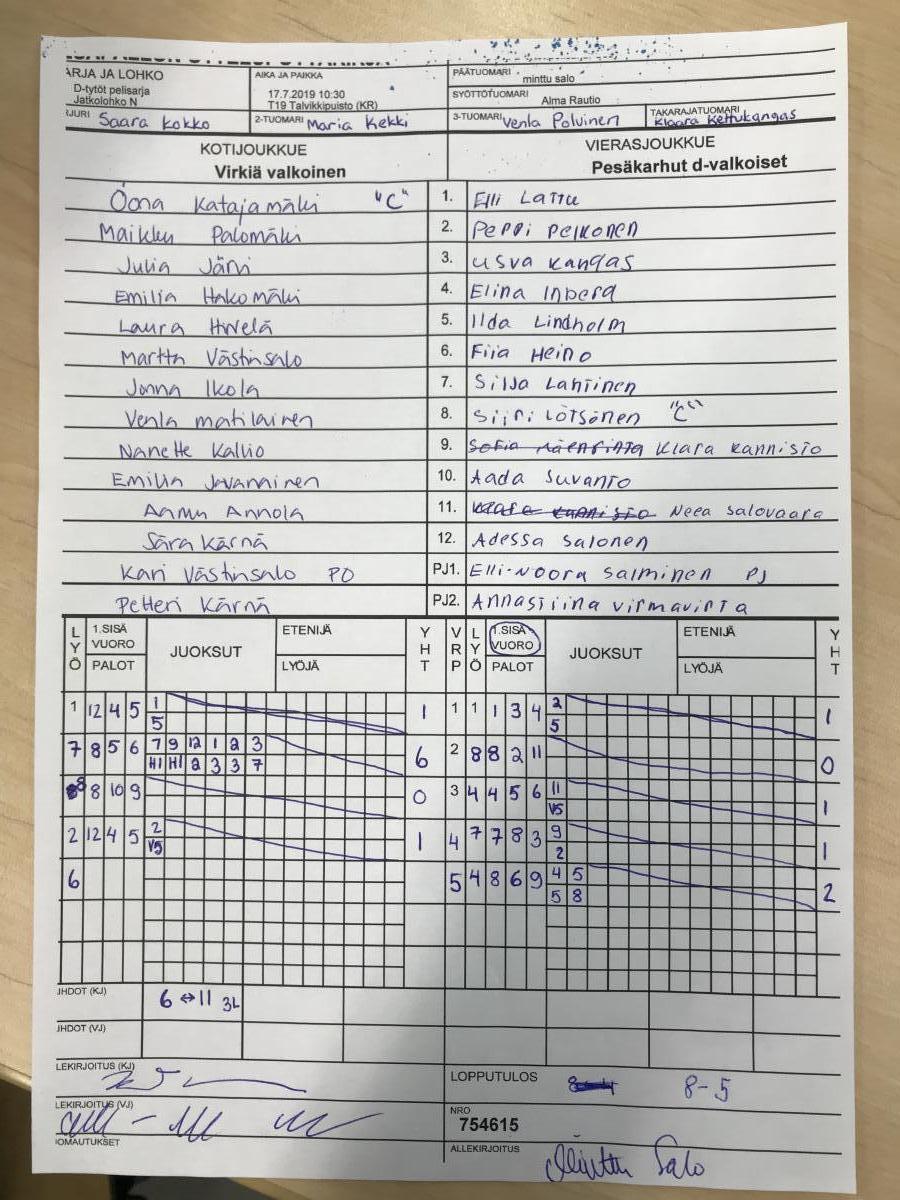 ARJA JA LOHKO
D-tytöt pelisarja
Jatkolohko N
AIKA JA PAIKKA
17.7.2019 10:30
T19 Talvikkipuisto (KR)
PÄÄTUOMARI minttu salo
SYÖTTÖTUOMARI Alma Rautio
JURI Saara Kokko 2-TUOMARI Maria Kekki 3-TUOMARI Venla Polvinen TAKARAJATUOMARI Klaara Kettukangas
KOTIJOUKKUE VIERASJOUKKUE
Virkiä valkoinen Pesäkarhut d-valkoiset
Oona Katajamäki "C" 1. Elli Lattu
Maikku Palomäki 2. Peppi Pelkonen
Julia Järvi 3. Usva Kangas
Emilia Hakomäki 4. Elina Inberg
Laura 5. Ilda Lindholm
Martta Västinsalo 6. Fiia Heino
Jonna Ikola 7. Silja Lahtinen
Venla Matilainen 8. Siiri Lötsönen "C"
Nanette Kallio 9. Klara Kannisto
Emilia 10. Aada Suvanto
Annu Annola 11. Neea Salovaara
Sara Kärnä 12. Adessa Salonen
Kari Västinsalo PO PJ1. Elli-Noora Salminen PJ
Petteri Kärnä PJ2. Annastiina Virmavirta
LYÖ 1.SISÄ VUORO PALOT JUOKSUT ETENIJÄ LYÖJÄ YHT VRP LYÖ 1.SISÄ VUORO PALOT JUOKSUT ETENIJÄ LYÖJÄ YHT
1 12 4 5 1 1 1 1 1 3 4 2 1
5 5
7 8 5 6 7 9 12 1 2 3 6 2 8 8 2 11 0
H1 H1 2 3 3 7
8 8 10 9 0 3 4 4 5 6 11 1
V5
2 12 4 5 2 1 4 7 7 8 3 9 1
V5 2
6 5 4 8 6 9 4 5 2
5 8
IHDOT (KJ) 6 ↔ 11 3L
IHDOT (VJ)
LEKIRJOITUS (KJ) LOPPUTULOS 8-5
LEKIRJOITUS (VJ) NRO
754615
IOMAUTUKSET ALLEKIRJOITUS Minttu Salo